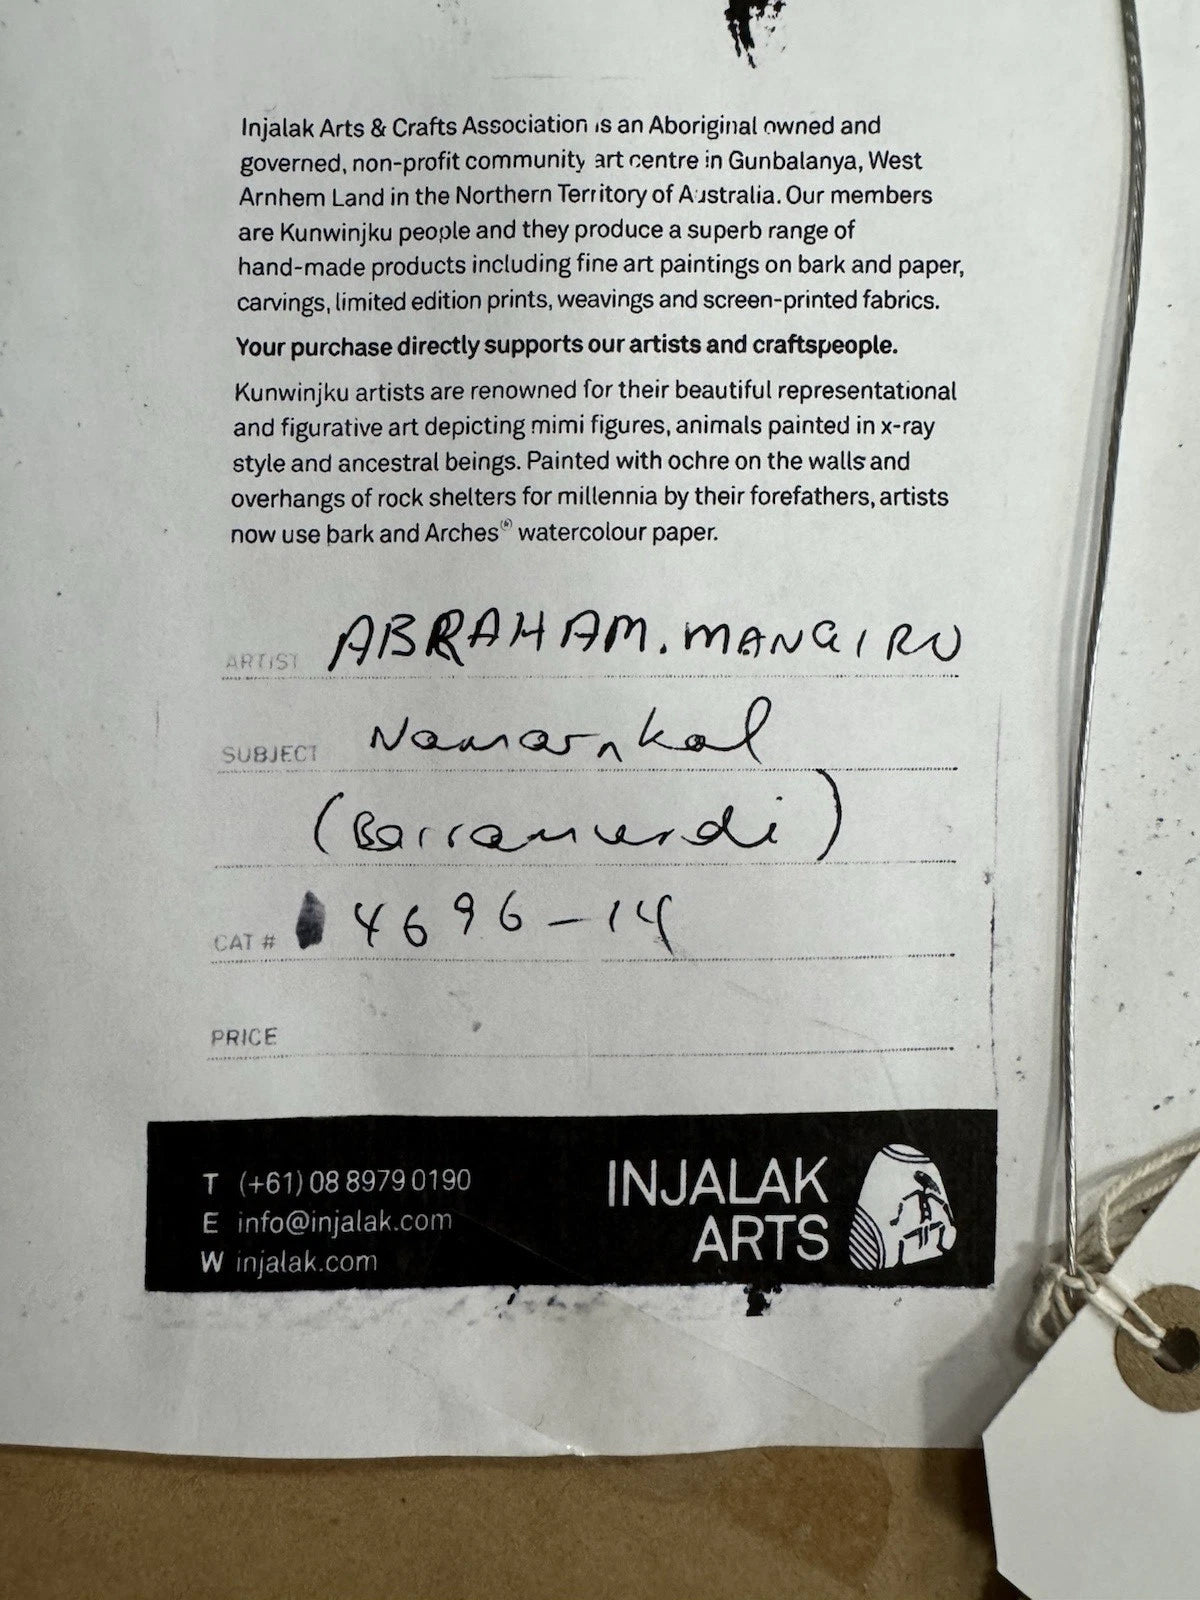 Injalak Arts & Crafts Association is an Aboriginal owned and
governed, non-profit community art centre in Gunbalanya, West
Arnhem Land in the Northern Territory of Australia. Our members
are Kunwinjku people and they produce a superb range of
hand-made products including fine art paintings on bark and paper,
carvings, limited edition prints, weavings and screen-printed fabrics.
Your purchase directly supports our artists and craftspeople.
Kunwinjku artists are renowned for their beautiful representational
and figurative art depicting mimi figures, animals painted in x-ray
style and ancestral beings. Painted with ochre on the walls and
overhangs of rock shelters for millennia by their forefathers, artists
now use bark and Arches® watercolour paper.
ARTIST ABRAHAM. MANGIRU
SUBJECT Namarnkol
(Barramundi)
CAT # 4696-14
PRICE
T (+61) 08 8979 0190
E info@injalak.com
W injalak.com
INJALAK
ARTS